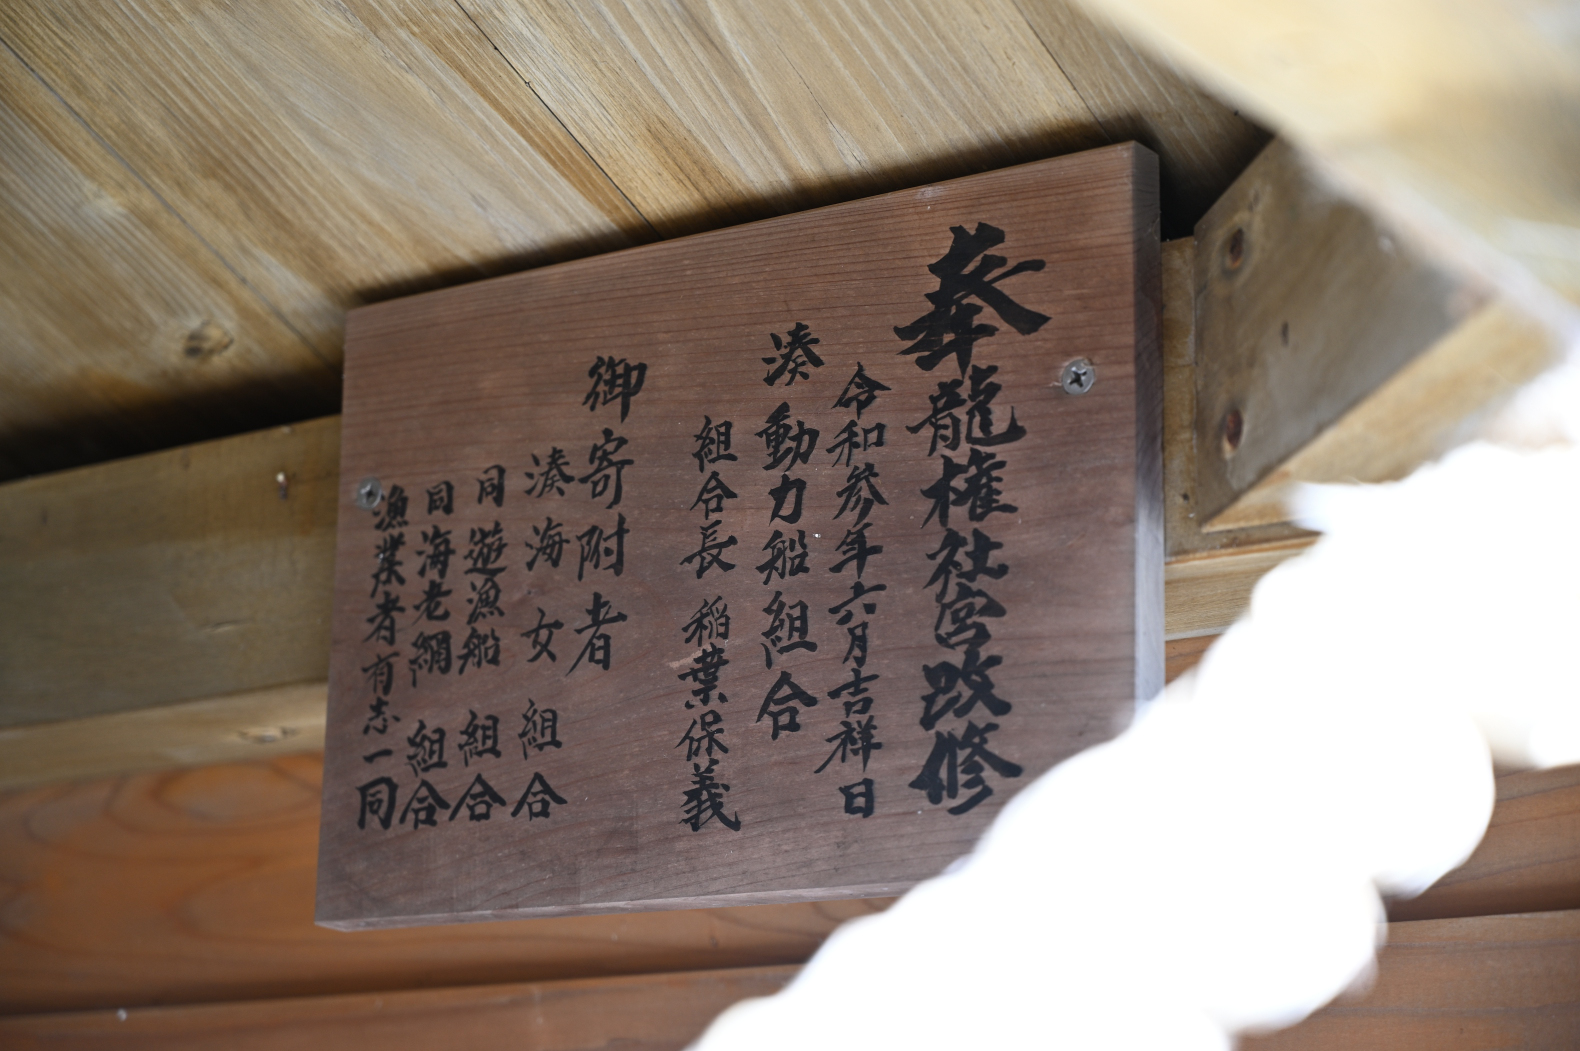 奉龍権社宮改修
令和参年六月吉祥日
湊動力船組合
組合長 稲葉保義
御寄附者
湊海女組合
同遊漁船組合
同海老網組合
漁業者有志一同